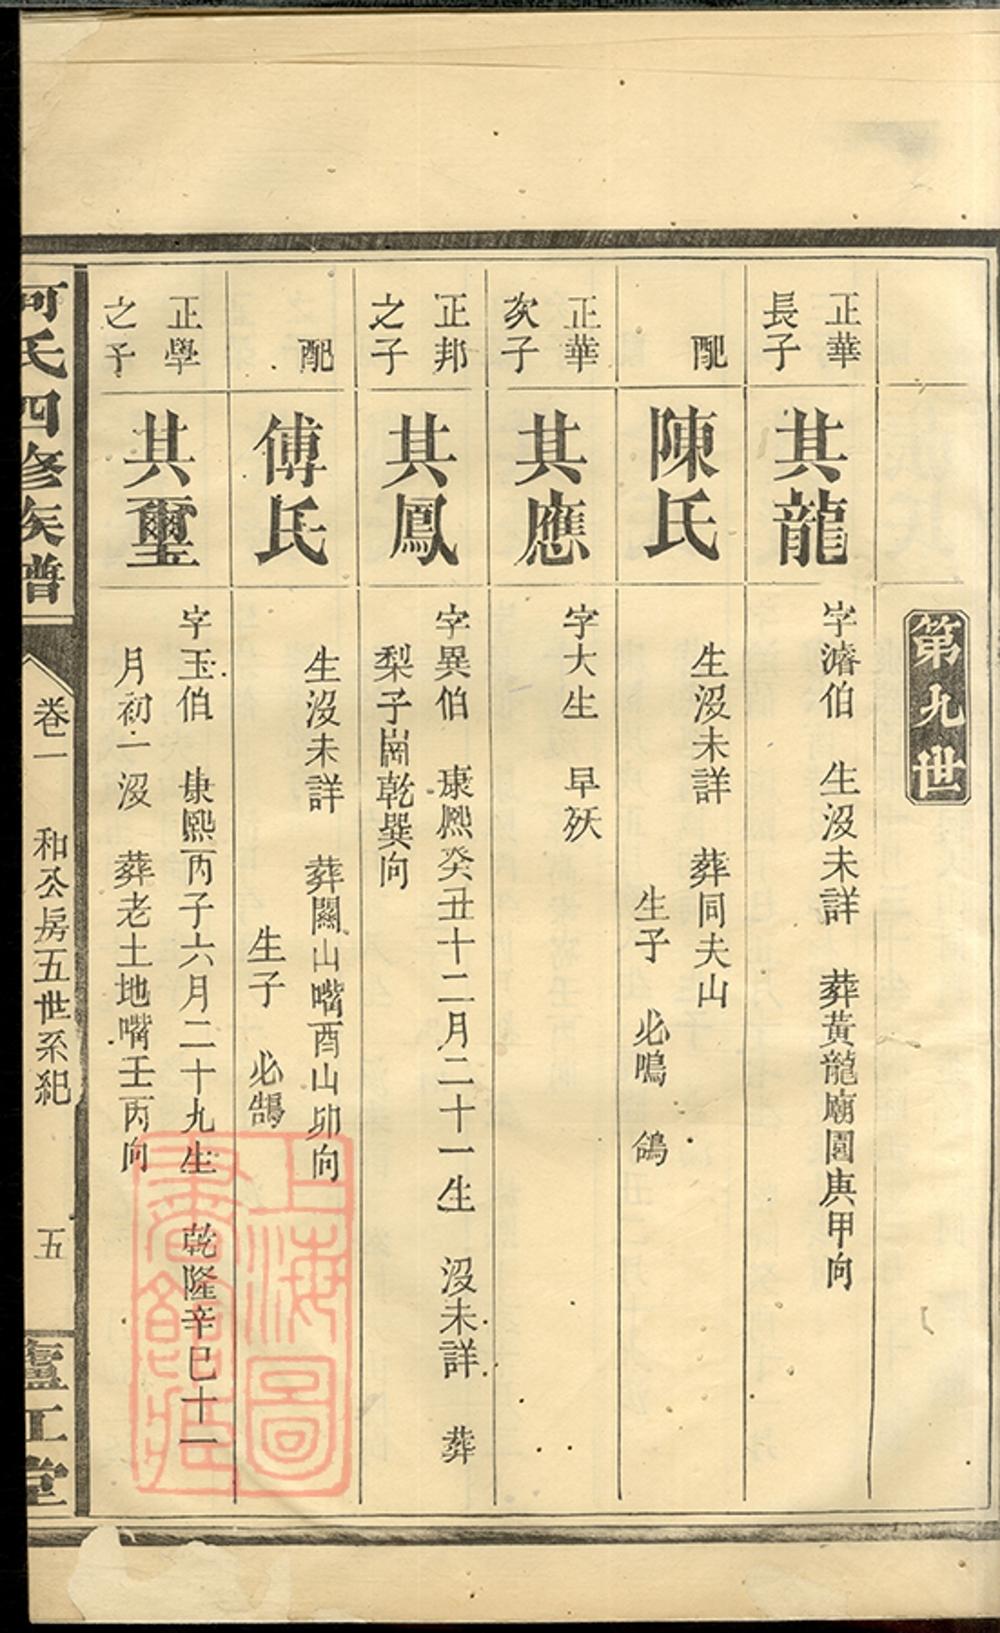 第九世
正華
長子
其龍
字濬伯 生沒未詳 葬黃龍廟園庚甲向
配
陳氏
生沒未詳 葬同夫山
生子 必鳴 鴿
正華
次子
其應
字大生 早殀
正邦
之子
其鳳
字異伯 康熙癸丑十二月二十一生 沒未詳 葬
梨子崗乾巽向
配
傅氏
生沒未詳 葬關山嘴酉山卯向
生子 必鵠
正學
之子
其璽
字玉伯 康熙丙子六月二十九生 乾隆辛巳十一
月初一沒 葬老土地嘴壬丙向
何氏四修族譜
卷一 和公房五世系紀 五
廬江堂
上海圖
書館藏